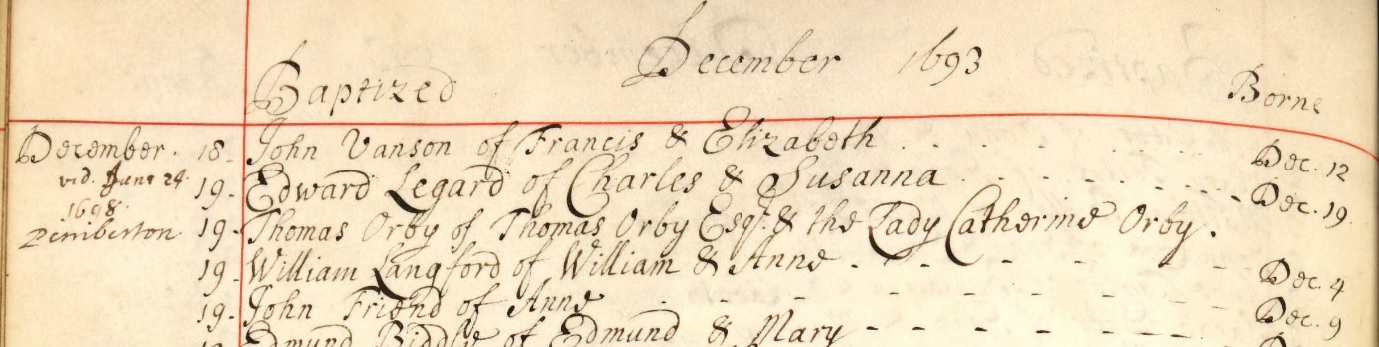 December 1693
Baptized Borne
December. 18. John Vanson of Francis & Elizabeth . . . . . . Dec. 12
vid. June 24 19. Edward Legard of Charles & Susanna . . - - - - - - Dec. 19.
1698.
Pemberton 19. Thomas Orby of Thomas Orby Esqr. & the Lady Catherine Orby.
19. William Langford of William & Anne . - - - - - - Dec. 4
19. John Friend of Anne . - - - - - - Dec. 9
Edmund Biddle of Edmund & Mary - - - - - - -